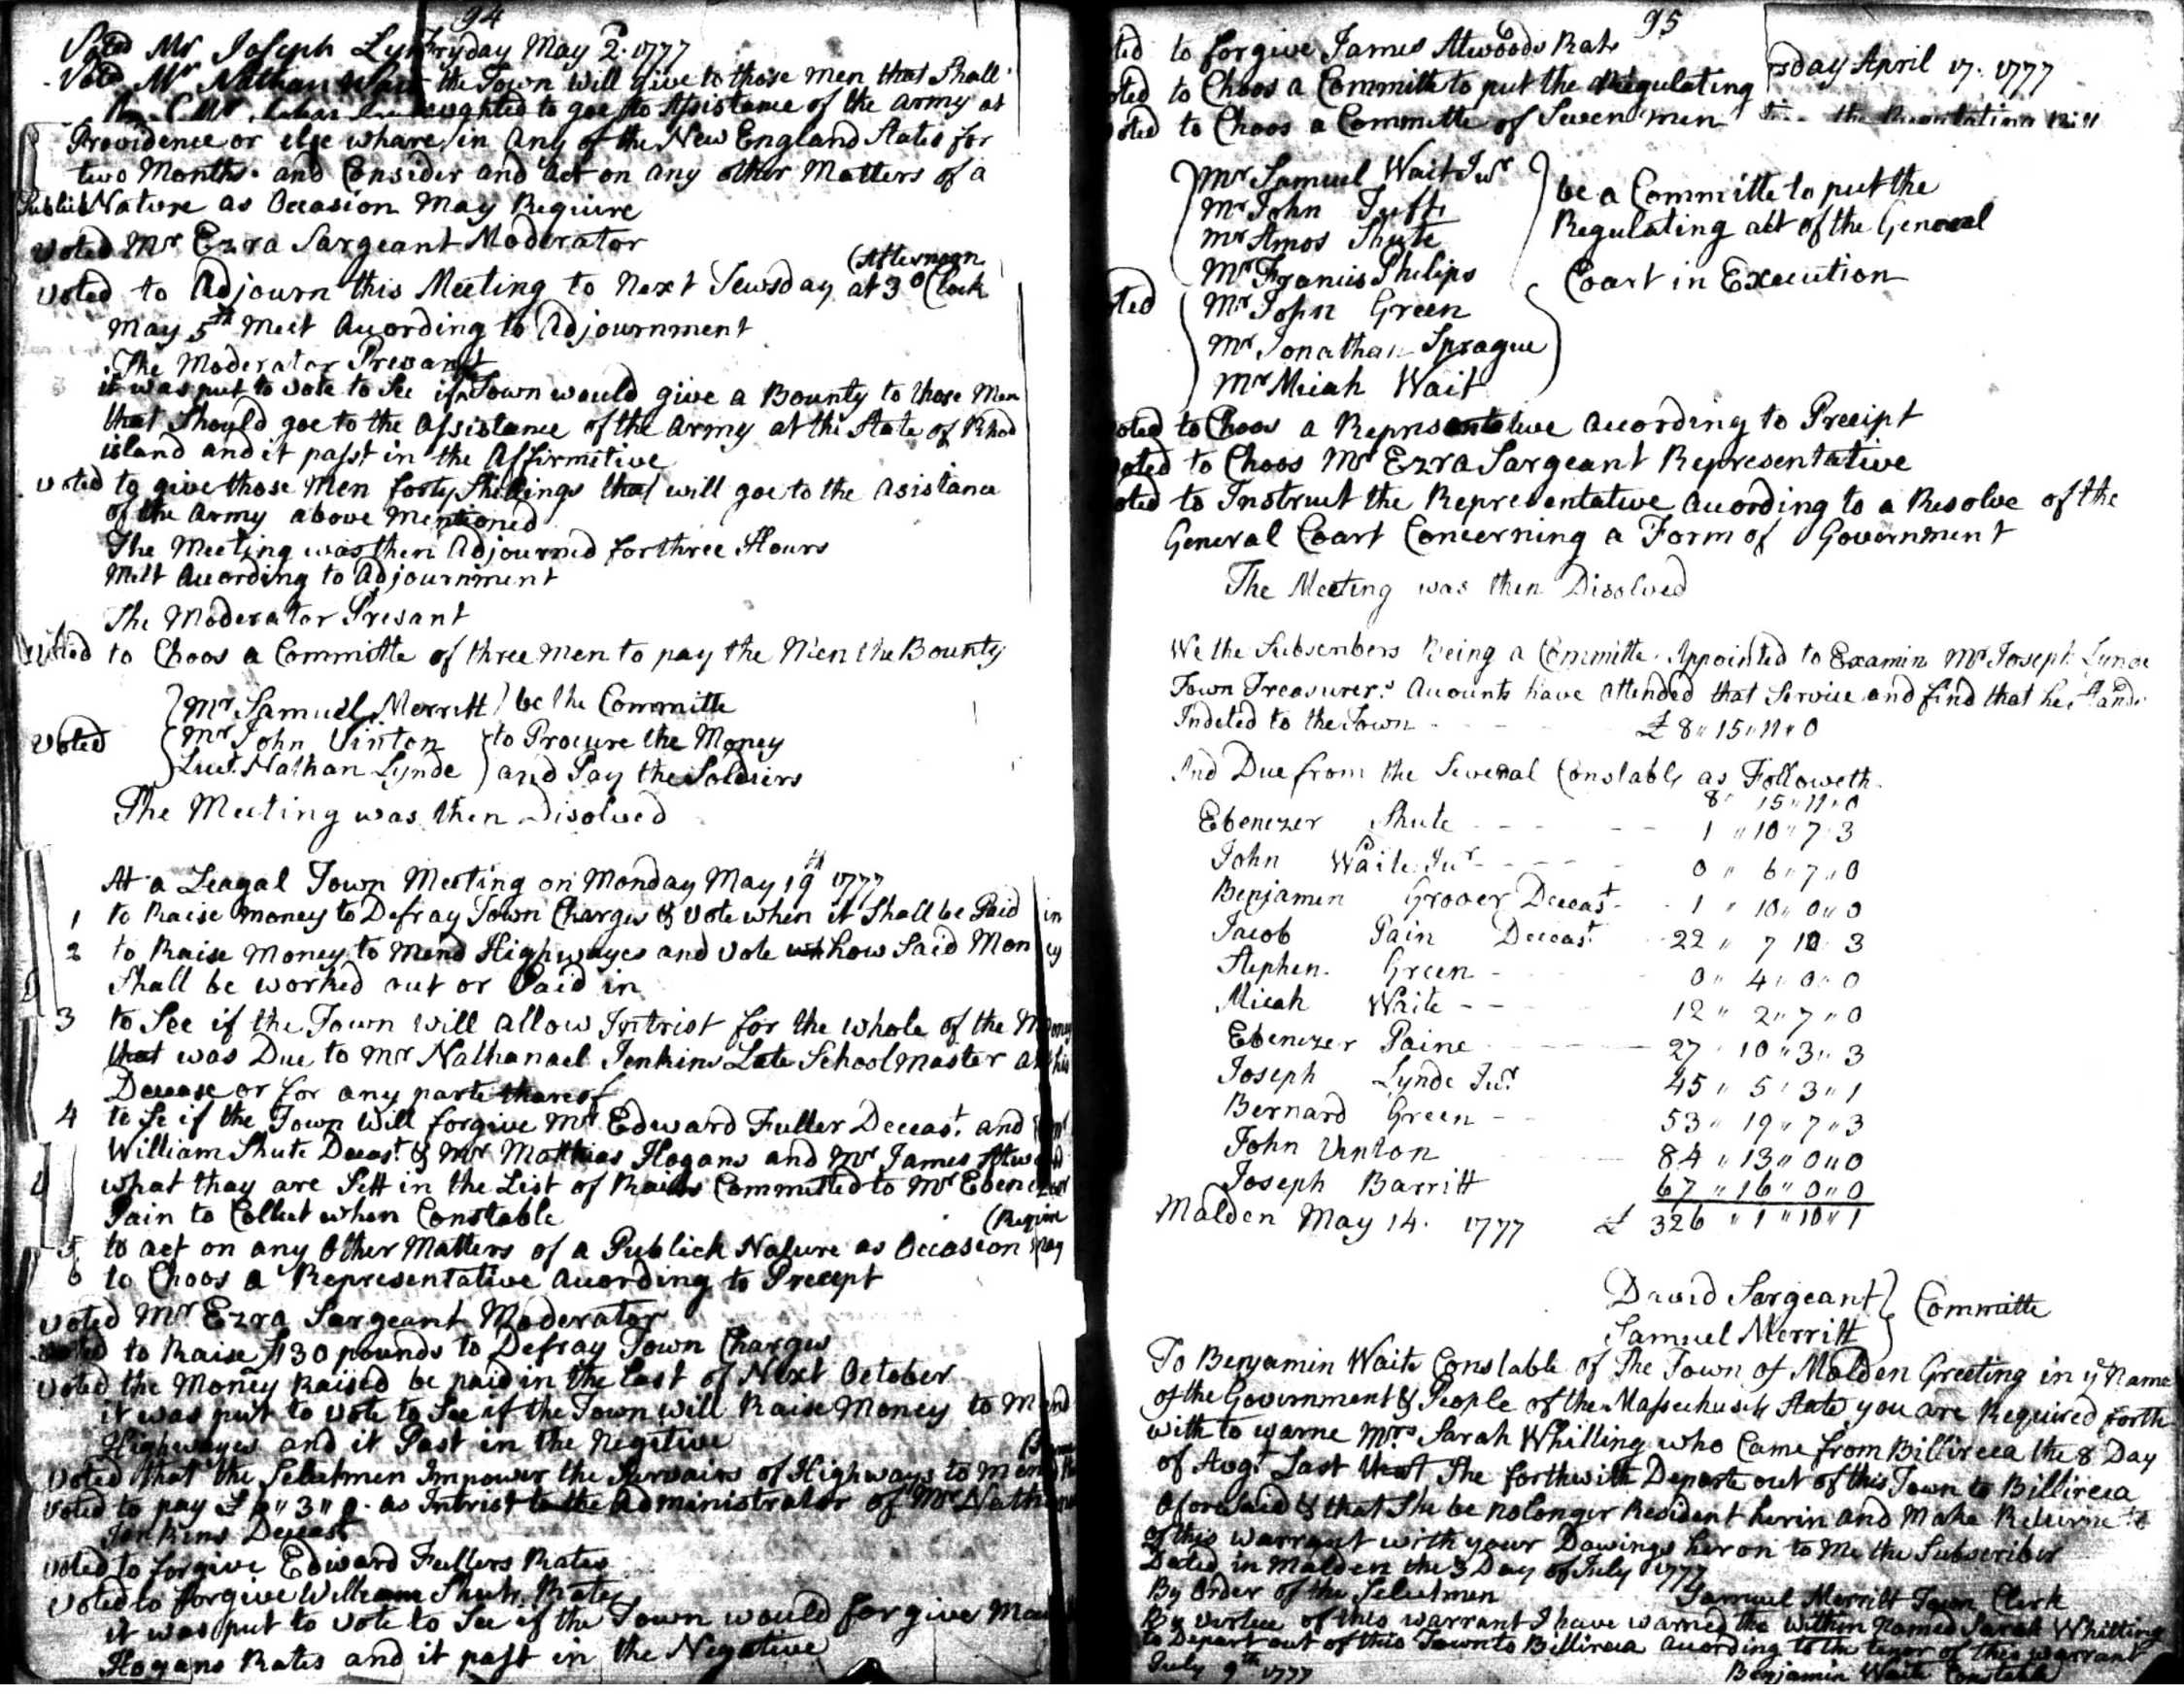 94
Voted Mr Joseph Lyn
Fryday May 2. 1777
Voted Mr Nathan
the Town will give to those men that Shall
to goe to Assistance of the army at
Providence or else whare in any of the New England States for
two Months. and Consider and act on any other Matters of a
Publick Nature as Occasion May Require
Voted Mr Ezra Sargeant Moderator
(Afternoon
Voted to Adjourn this Meeting to Next Tewsday at 3 o Clock
May 5th Meet According to Adjournment
The Moderator Presant
it was put to vote to See if Town would give a Bounty to those Men
that Should goe to the Assistance of the Army at the State of Rhod
island and it passt in the Affirmitive
Voted to give those Men forty Shillings that will goe to the asistance
of the Army above Mentioned
The Meeting was then Adjourned for three Hours
Mett According to Adjournment
The Moderator Presant
Voted to Choos a Committe of three men to pay the Men the Bounty
Mr Samuel Merritt be the Committe
Voted Mr John Vinton to Procure the Money
Lieut. Nathan Lynde and Pay the Soldiers
The Meeting was then Disolved
At a Leagal Town Meeting on Monday May 19th 1777
1 to Raise money to Defray Town Charges & vote when it Shall be Paid in
2 to Raise Money to Mend Highwayes and vote how Said Money
Shall be worked out or Paid in
3 to See if the Town will allow Intrist for the whole of the Money
that was Due to Mr Nathanael Jenkins Late Schoolmaster at his
Decease or for any parte thareof
4 to Se if the Town will forgive Mr Edward Fuller Deceast. and
William Shute Deceast. & Mr Matthias Hogans and Mr James Atwood
what thay are Sett in the List of Raits Committed to Mr Ebenezer
Pain to Collect when Constable
(Require
5 to act on any Other Matters of a Publick Nature as Occasion may
6 to Choos a Representative According to Precept
Voted Mr Ezra Sargeant Moderator
Voted to Raise 130 pounds to Defray Town Charges
Voted the Money Raised be paid in the last of Next October
it was put to vote to See if the Town will Raise Money to Mend
Highwayes and it Past in the Negitive
Voted that the Selectmen Impower the Survairs of Highways to Mend
Voted to pay £ 3 as Intrist to the Administrator of Mr Nath
Jenkins Deceast
Voted to forgive Edward Fullers Rates
Voted to forgive William Shute Rates
it was put to vote to See if the Town would forgive
Hogans Rates and it past in the Negative
95
ted to forgive James Atwoods Rate
oted to Choos a Committe to put the Regulating
oted to Choos a Committe of Seven men
rsday April 17. 1777
the Regulation Bill
Mr Samuel Wait Jur
Mr John Tufts
Mr Amos Shute
Mr Francis Philips
ted Mr John Green
Mr Jonathan Sprague
Mr Micah Wait
be a Committe to put the
Regulating act of the General
Court in Execution
oted to Choos a Representative According to Precipt
oted to Choos Mr Ezra Sargeant Representative
oted to Instruct the Representative According to a Resolve of the
General Court Concerning a Form of Government
The Meeting was then Disolved
We the Subscribers Being a Committe Appointed to Examin Mr Joseph Lynde
Town Treasurer.s Accounts have attended that Service and find that he Stands
Indeted to the Town £ 8 " 15 " 11 " 0
And Due from the Several Constabls as Followeth
8 " 15 " 11 " 0
Ebenezer Shute 1 " 10 " 7 3
John Waite Jur 0 " 6 " 7 " 0
Benjamen Grover Deceast 1 " 10 " 0 " 0
Jacob Pain Deceast. 22 " 7 10 3
Stephen Green 0 " 4 " 0 " 0
Micah Waite 12 " 2 " 7 " 0
Ebenezer Paine 27 10 " 3 " 3
Joseph Lynde Jur 45 " 5 " 3 " 1
Bernard Green 53 " 19 " 7 " 3
John Vinton 84 " 13 " 0 " 0
Joseph Barritt 67 " 16 " 0 " 0
Malden May 14. 1777 £ 326 " 1 " 10 " 1
David Sargeant
Samuel Merritt
Committe
To Benjamin Waite Constable of the Town of Malden Greeting in ye Name
of the Government & People of the Massechusets State you are Required forth
with to warne Mrs Sarah Whitting who Came from Billireca the 8 Day
of Augt Last that She forthwith Departe out of this Town to Billireca
aforesaid & that She be no longer Resident herin and Make Returne
of this warrant with your Dowings heron to Me the Subscriber
Dated in Malden the 3 Day of July 1777
By Order of the Selectmen Samuel Merritt Town Clerk
By vertue of this warrant I have warned the within Named Sarah Whitting
to Depart out of this Town to Billireca according to the tenor of this warrant
July 9th 1777 Benjamin Waite Constable